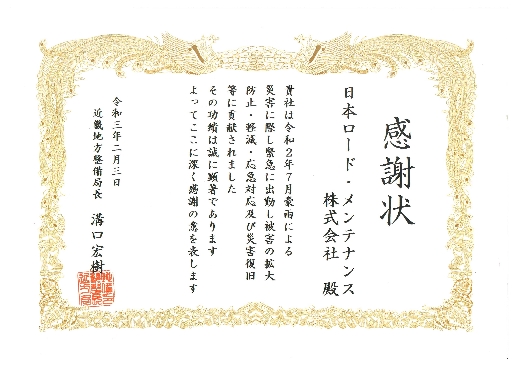 感謝状
日本ロード・メンテナンス
株式会社 殿
貴社は令和2年7月豪雨による
災害に際し緊急に出動し被害の拡大
防止・軽減・応急対応及び災害復旧
等に貢献されました
その功績は誠に顕著であります
よってここに深く感謝の意を表します
令和三年二月三日
近畿地方整備局長 溝口宏樹